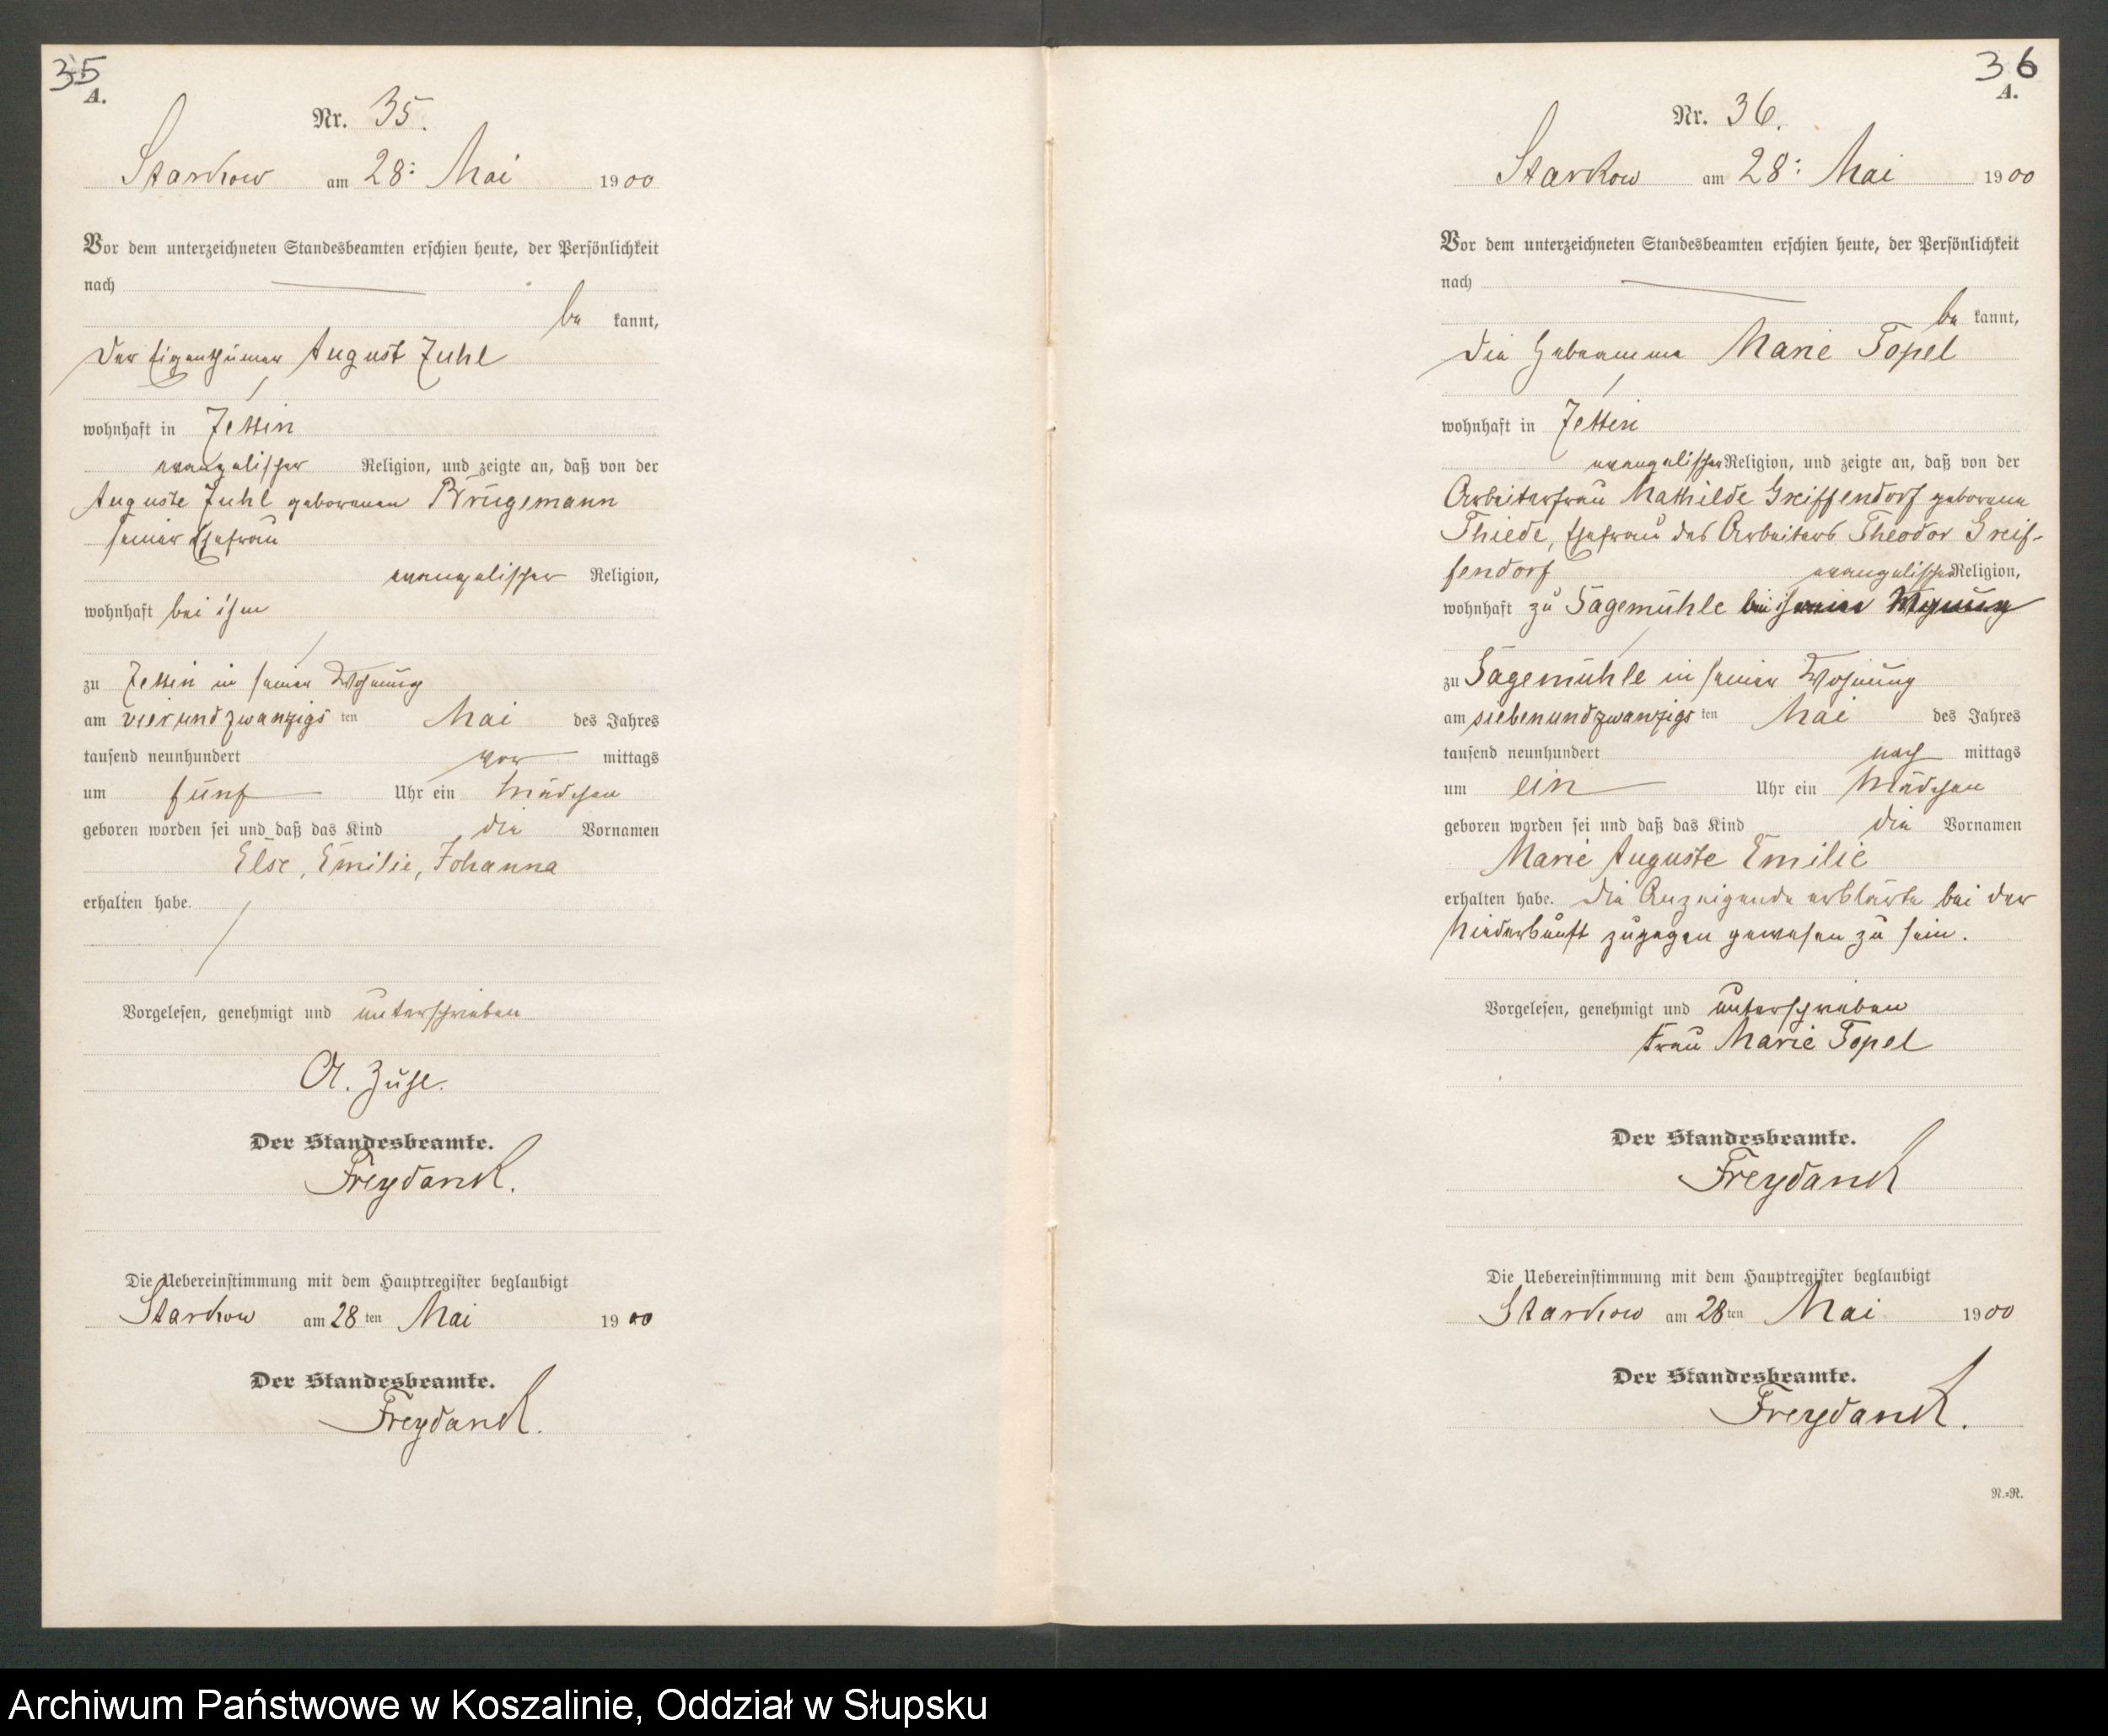 35
A.
Nr. 35.
Starkow am 28. Mai 1900
Vor dem unterzeichneten Standesbeamten erschien heute, der Persönlichkeit
nach
be kannt,
der Eigenthümer August Zuhl
wohnhaft in Zettin
evangelischer Religion, und zeigte an, daß von der
Auguste Zuhl geborenen Brügemann
seiner Ehefrau
evangelischer Religion,
wohnhaft bei ihm
zu Zettin in seiner Wohnung
am vierundzwanzigs ten Mai des Jahres
tausend neunhundert vor mittags
um fünf Uhr ein Mädchen
geboren worden sei und daß das Kind die Vornamen
Else, Emilie, Johanna
erhalten habe.
Vorgelesen, genehmigt und unterschrieben
A. Zuhl.
Der Standesbeamte.
Freydank.
Die Uebereinstimmung mit dem Hauptregister beglaubigt
Starkow am 28 ten Mai 1900
Der Standesbeamte.
Freydank.
36
A.
Nr. 36.
Starkow am 28. Mai 1900
Vor dem unterzeichneten Standesbeamten erschien heute, der Persönlichkeit
nach
be kannt,
die Hebeamme Marie Topel
wohnhaft in Zettin
evangelischer Religion, und zeigte an, daß von der
Arbeiterfrau Mathilde Greiffendorf geborene
Thiede, Ehefrau des Arbeiters Theodor Greif-
fendorf evangelischer Religion,
wohnhaft zu Sägemühle bei
zu Sägemühle in seiner Wohnung
am siebenundzwanzigs ten Mai des Jahres
tausend neunhundert nach mittags
um ein Uhr ein Mädchen
geboren worden sei und daß das Kind die Vornamen
Marie Auguste Emilie
erhalten habe. Die Anzeigende erklärte bei der
Niederkunft zugegen gewesen zu sein.
Vorgelesen, genehmigt und unterschrieben
Frau Marie Topel
Der Standesbeamte.
Freydank
Die Uebereinstimmung mit dem Hauptregister beglaubigt
Starkow am 28 ten Mai 1900
Der Standesbeamte.
Freydank.
N.=R.
Archiwum Państwowe w Koszalinie, Oddział w Słupsku